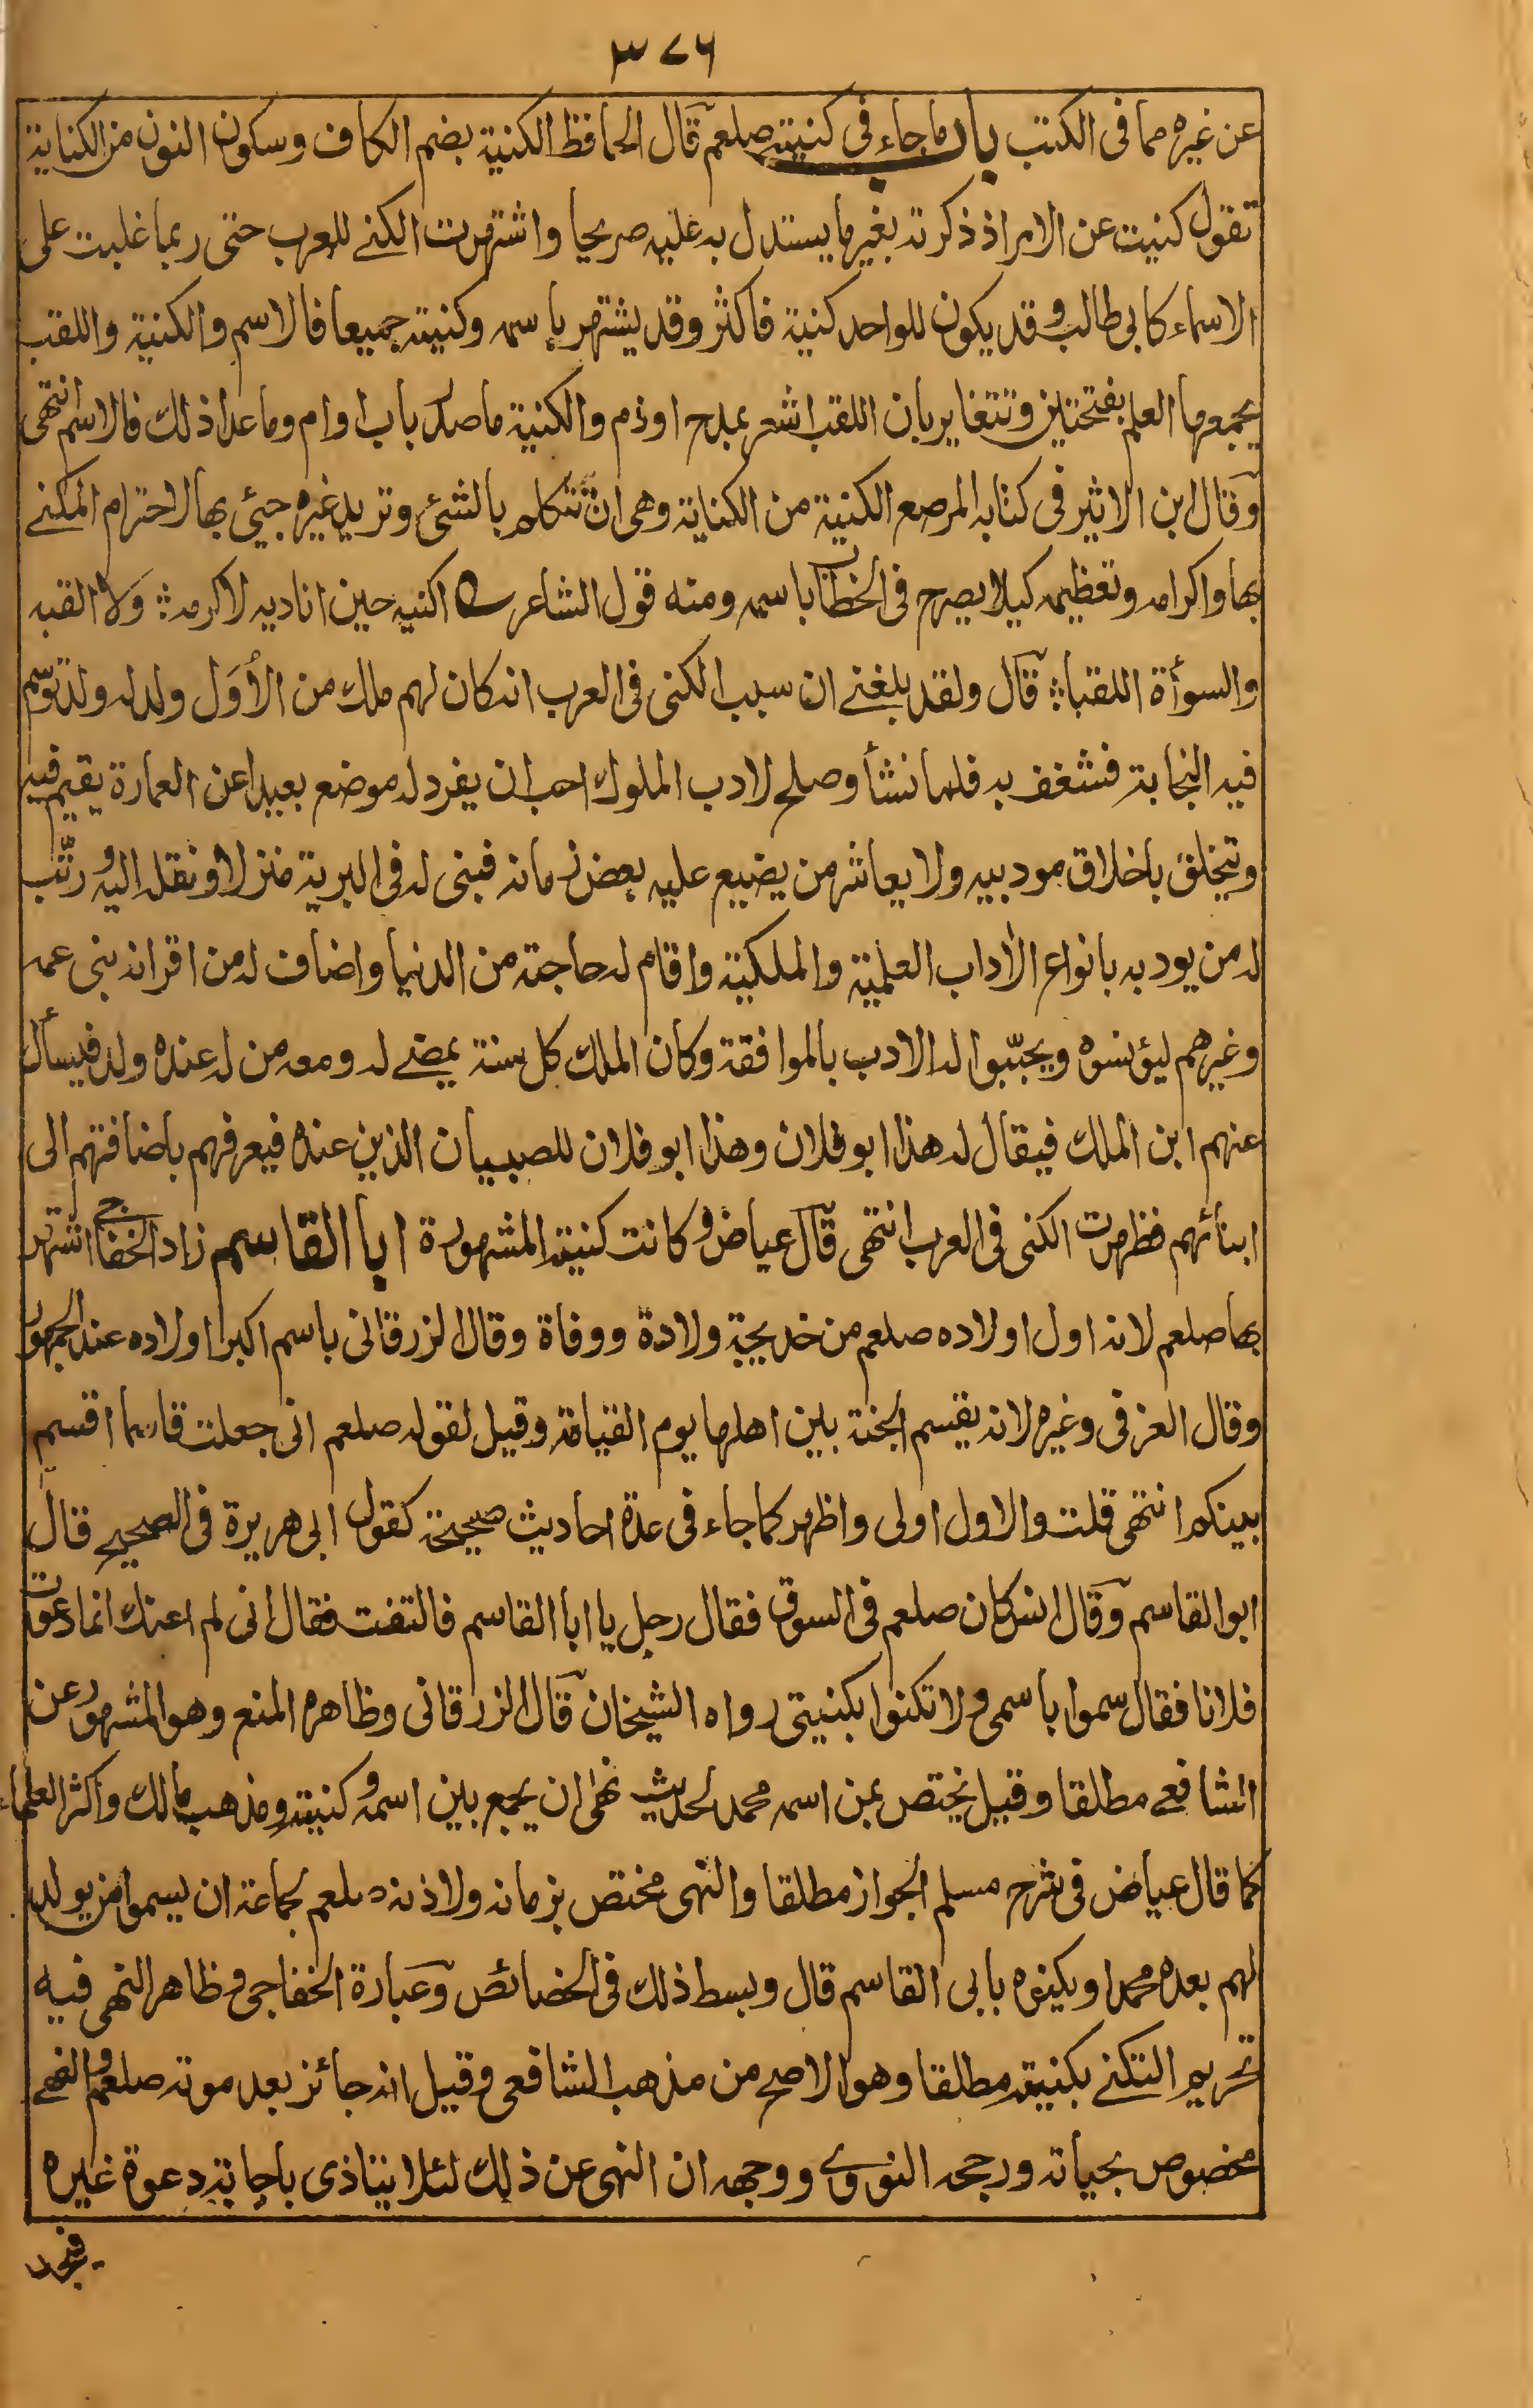 ٣٧٦
عن غيره مما فى الكتب باب ما جاء فى كنيته صلعم قال الحافظ الكنية بضم الكاف وسكون النون من الكناية
تقول كنيت عن الامر اذ ذكرته بغير ما يستدل به عليه صريحا واشتهرت الكنے للعرب حتى ربما غلبت على
الاسماء كابى طالب وقد يكون للواحد كنية فاكثر وقد يشتهر باسمه وكنيته جميعا فالاسم والكنية واللقب
يجمعها العلم بفتحتين وتتغاير بان اللقب اشعر بمدح او ذم والكنية ما صدر باب او ام وما عدا ذلك فالاسم انتهى
وقال ابن الاثير فى كتابه المرصع الكنية من الكناية وهى ان تتكلم بالشئ وتريد غيره جيئ بها لاحترام المكنے
بها واكرامه وتعظيمه كيلا يصرح فى الخطاب باسمه ومنه قول الشاعر ؎ اكنيه حين اناديه لاكرمه ∴ ولا القبه
والسوأة اللقبا ∴ قال ولقد بلغنے ان سبب الكنى فى العرب انه كان لهم ملك من الأول ولد له ولد توسم
فيه النجابة فشغف به فلما نشأ وصلح لادب الملوك احب ان يفرد له موضع بعيدا عن العمارة يقيم فيه
ويتخلق باخلاق موديبيه ولا يعاشر من يضيع عليه بعض زمانه فبنى له فى البرية منزلا ونقله اليه ورتّب
له من يودبه بانواع الأداب العلمية والملكية واقام له حاجته من الدنيا واضاف له من اقرانه بنى عمه
وغيرهم ليؤنسوه ويحبّبوا له الادب بالموافقة وكان الملك كل سنة يمضے له ومعه من له عنده ولد فيسأل
عنهم ابن الملك فيقال له هذا ابو فلان وهذا ابو فلان للصبيان الذين عنده فيعرفهم باضافتهم الى
ابنائهم فظهرت الكنى فى العرب انتهى قال عياض وكانت كنيته المشهورة ابا القاسم زاد الخفاجى اشتهر
بها صلعم لانه اول اولاده صلعم من خديجة ولادة ووفاة وقال الزرقانى باسم اكبر اولاده عند الجمهور
وقال العزفى وغيره لانه يقسم الجنة بين اهلها يوم القيامة وقيل لقوله صلعم انى جعلت قاسما اقسم
بينكم انتهى قلت والاول اولى واظهر كما جاء فى عدة احاديث صحيحة كقول ابى هريرة فى الصحيح قال
ابو القاسم وقال انس كان صلعم فى السوق فقال رجل يا ابا القاسم فالتفت فقال انى لم اعنك انما دعوت
فلانا فقال سموا باسمى ولا تكنوا بكنيتى رواه الشيخان قال الزرقانى وظاهره المنع وهو المشهور عن
الشافعے مطلقا وقيل يختص بمن اسمه محمد لحديث نهى ان يجمع بين اسمه وكنيته ومذهب مالك واكثر العلماء
كما قال عياض فى شرح مسلم الجواز مطلقا والنهى مختص بزمانه ولاذنه صلعم لجماعة ان يسموا من يولد
لهم بعده محمدا ويكنوه بابى القاسم قال وبسط ذلك فى الخصائص وعبارة الخفاجى وظاهر النهى فيه
تحريم التكنے بكنيته مطلقا وهو الاصح من مذهب الشافعى وقيل انه جائز بعد موته صلعم والنهے
مخصوص بحياته ورجحه النووے ووجهه ان النهى عن ذلك لئلا يتاذى باجابة دعوة غيره